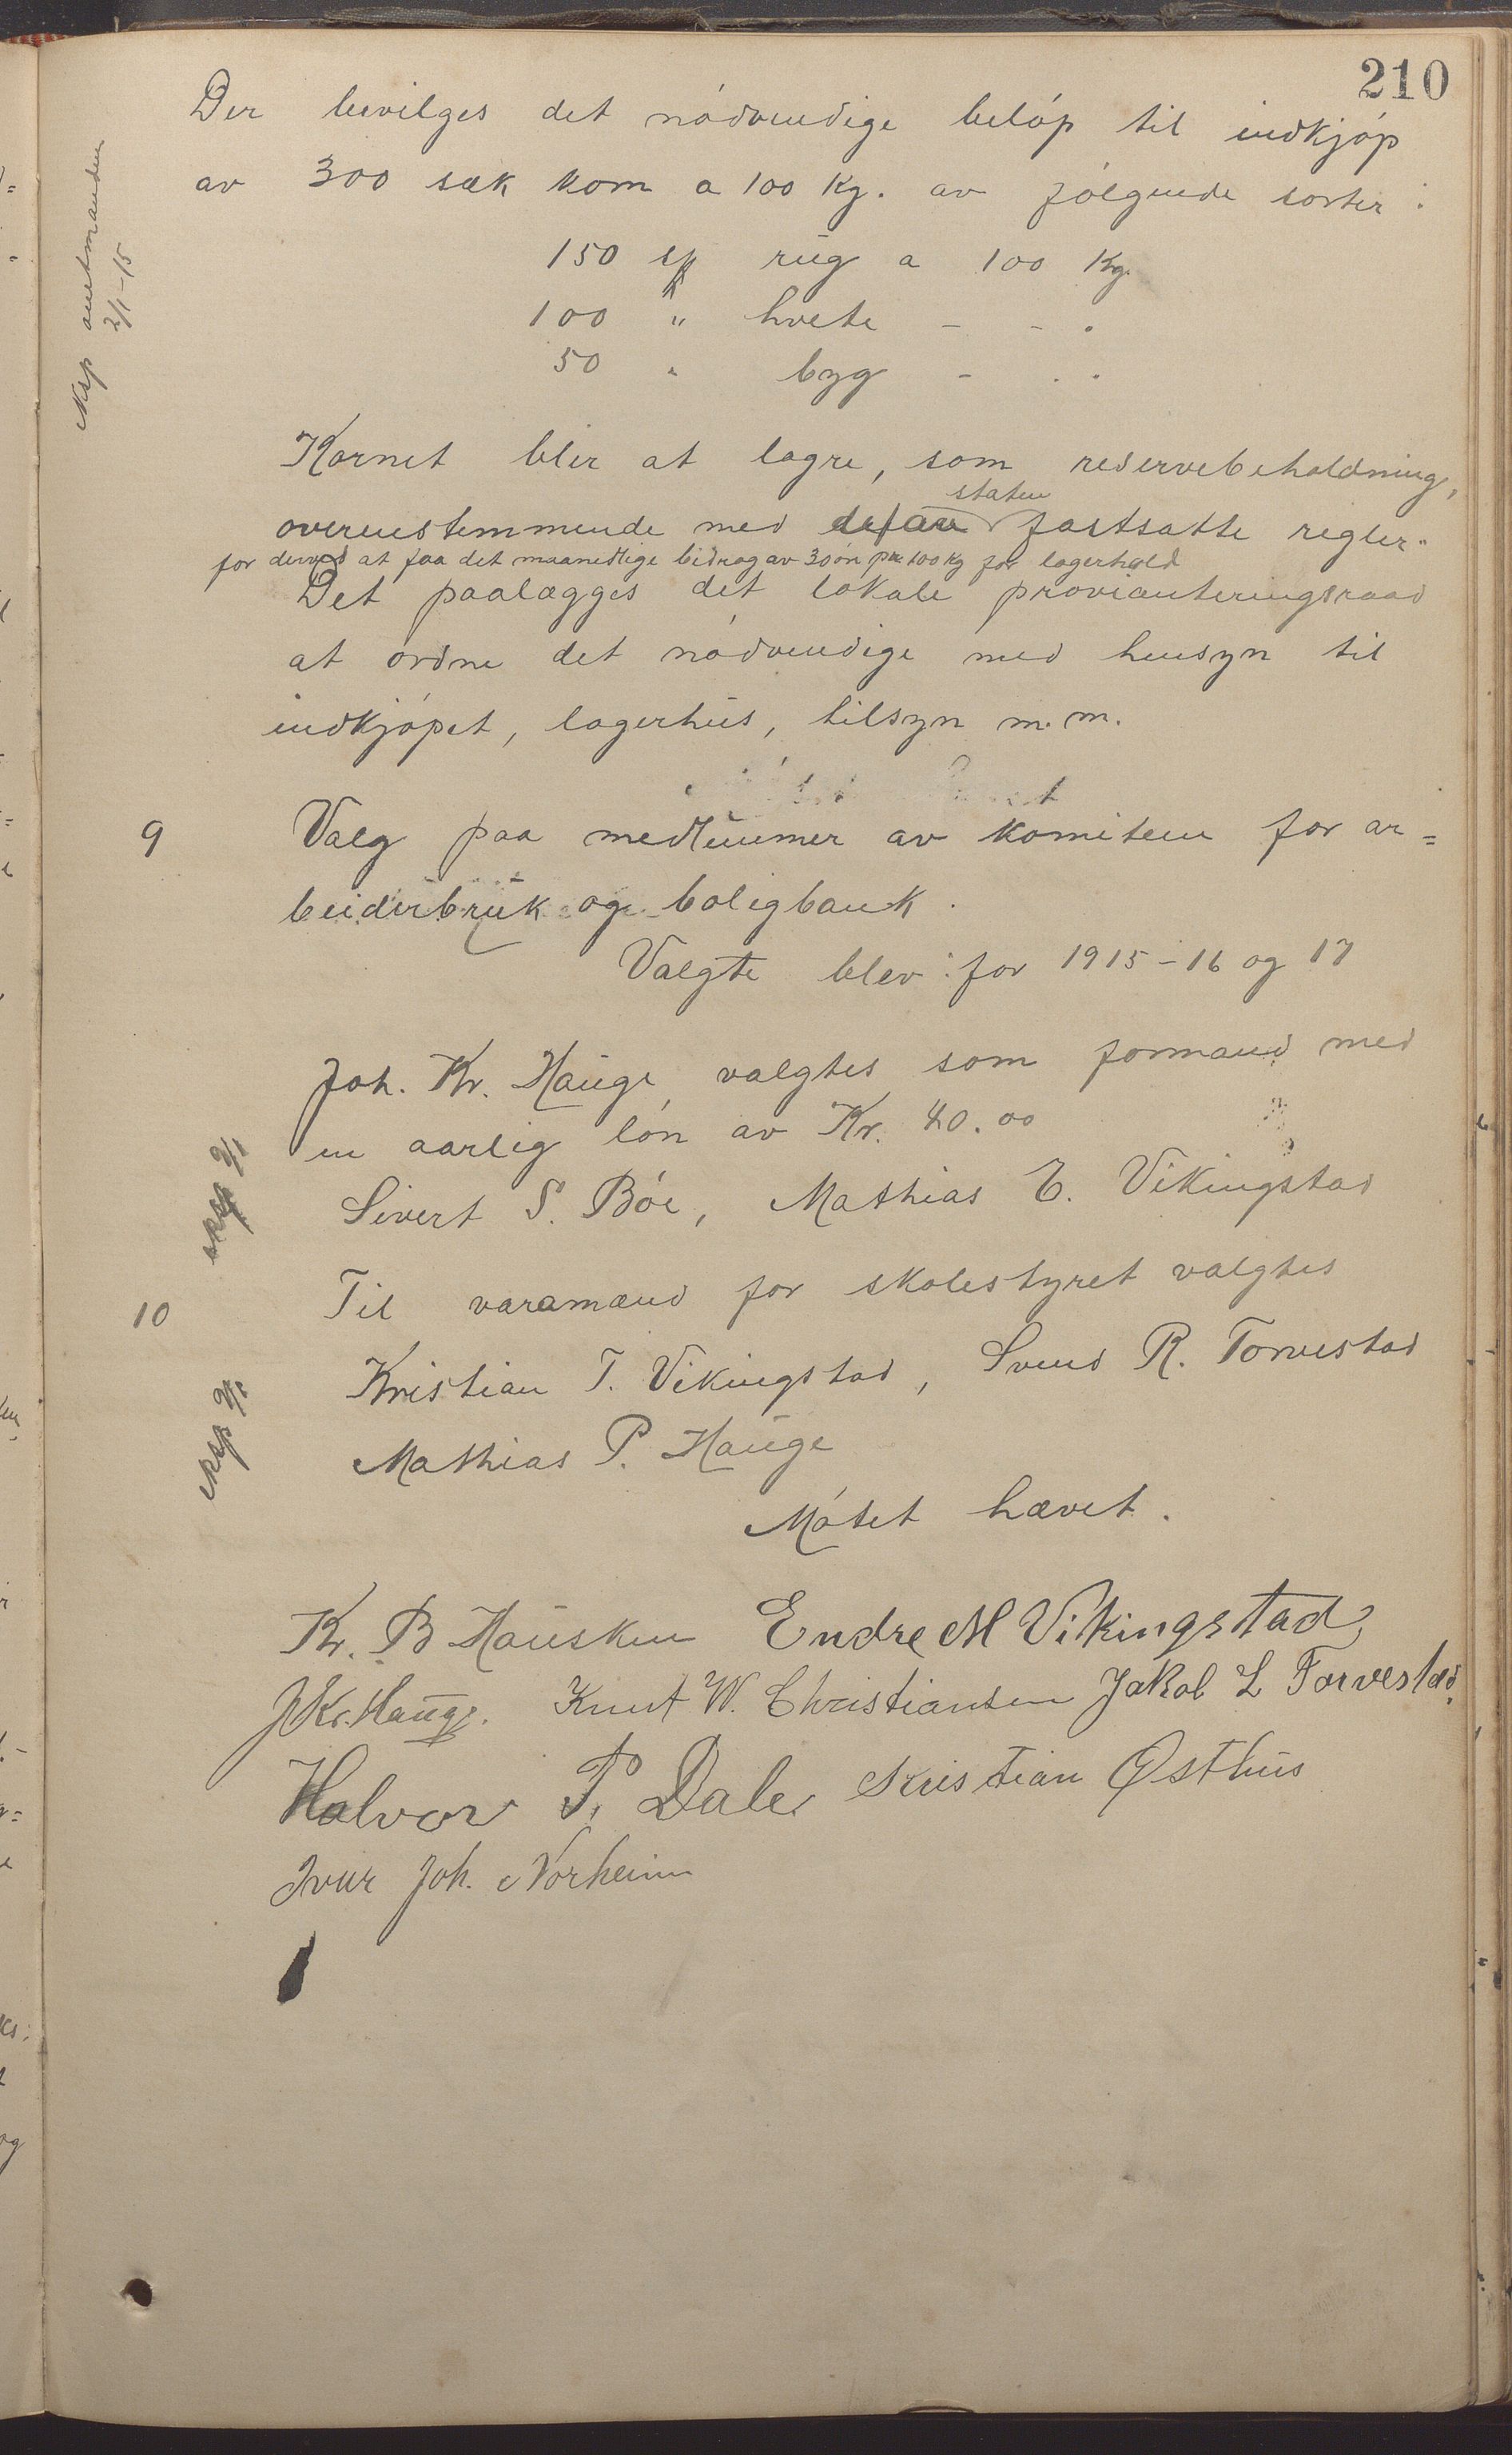 210
Der bevilges det nódvendige belóp til indkjóp
av 300 sæk korn a 100 Kg. av fólgende sorter:
eksp amtmanden
2/1-15
150 sk rug a 100 Kg.
100 " hvete - - .
50 " byg - . .
Kornet blir at lagre, som reservebeholdning,
staten
overenstemmende med de av fastsatte regler.
for derved at faa det maanedlige bidrag av 30 öre pr 100 Kg for lagerhold
Det paalægges det lokale provianteringsraad
at ordne det nódvendige med hensyn til
indkjópet, lagerhus, tilsyn m.m.
9 Valg paa medlemmer av komiteen for ar=
beiderbruk og boligbank.
Valgte blev: for 1915-16 og 17
Joh. Kr. Hauge valgtes som formand med
en aarlig lón av Kr. 40.00
eksp 2/1
Sivert S. Bóe, Mathias E. Vikingstad
10 Til varamænd for skolestyret valgtes
Kristian T. Vikingstad, Svend R. Torvestad
eksp 2/1
Mathias P. Hauge
Mótet hævet.
Kr. B Hausken Endre M Vikingstad
J Kr. Hauge. Knut W. Christiansen Jakob L Torvestad.
Halvor P. Dale. Kristian Østhus
Ivar Joh. Norheim